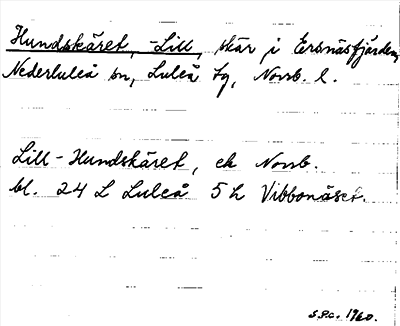 Hundskäret, -Lill, skär i Ersnäsfjärden,
Nederluleå sn, Luleå tg, Norrb. l.
Lill-Hundskäret, ek Norrb.
bl. 24 L Luleå 5 h Vibbonäset.
S.P.C. 1960.